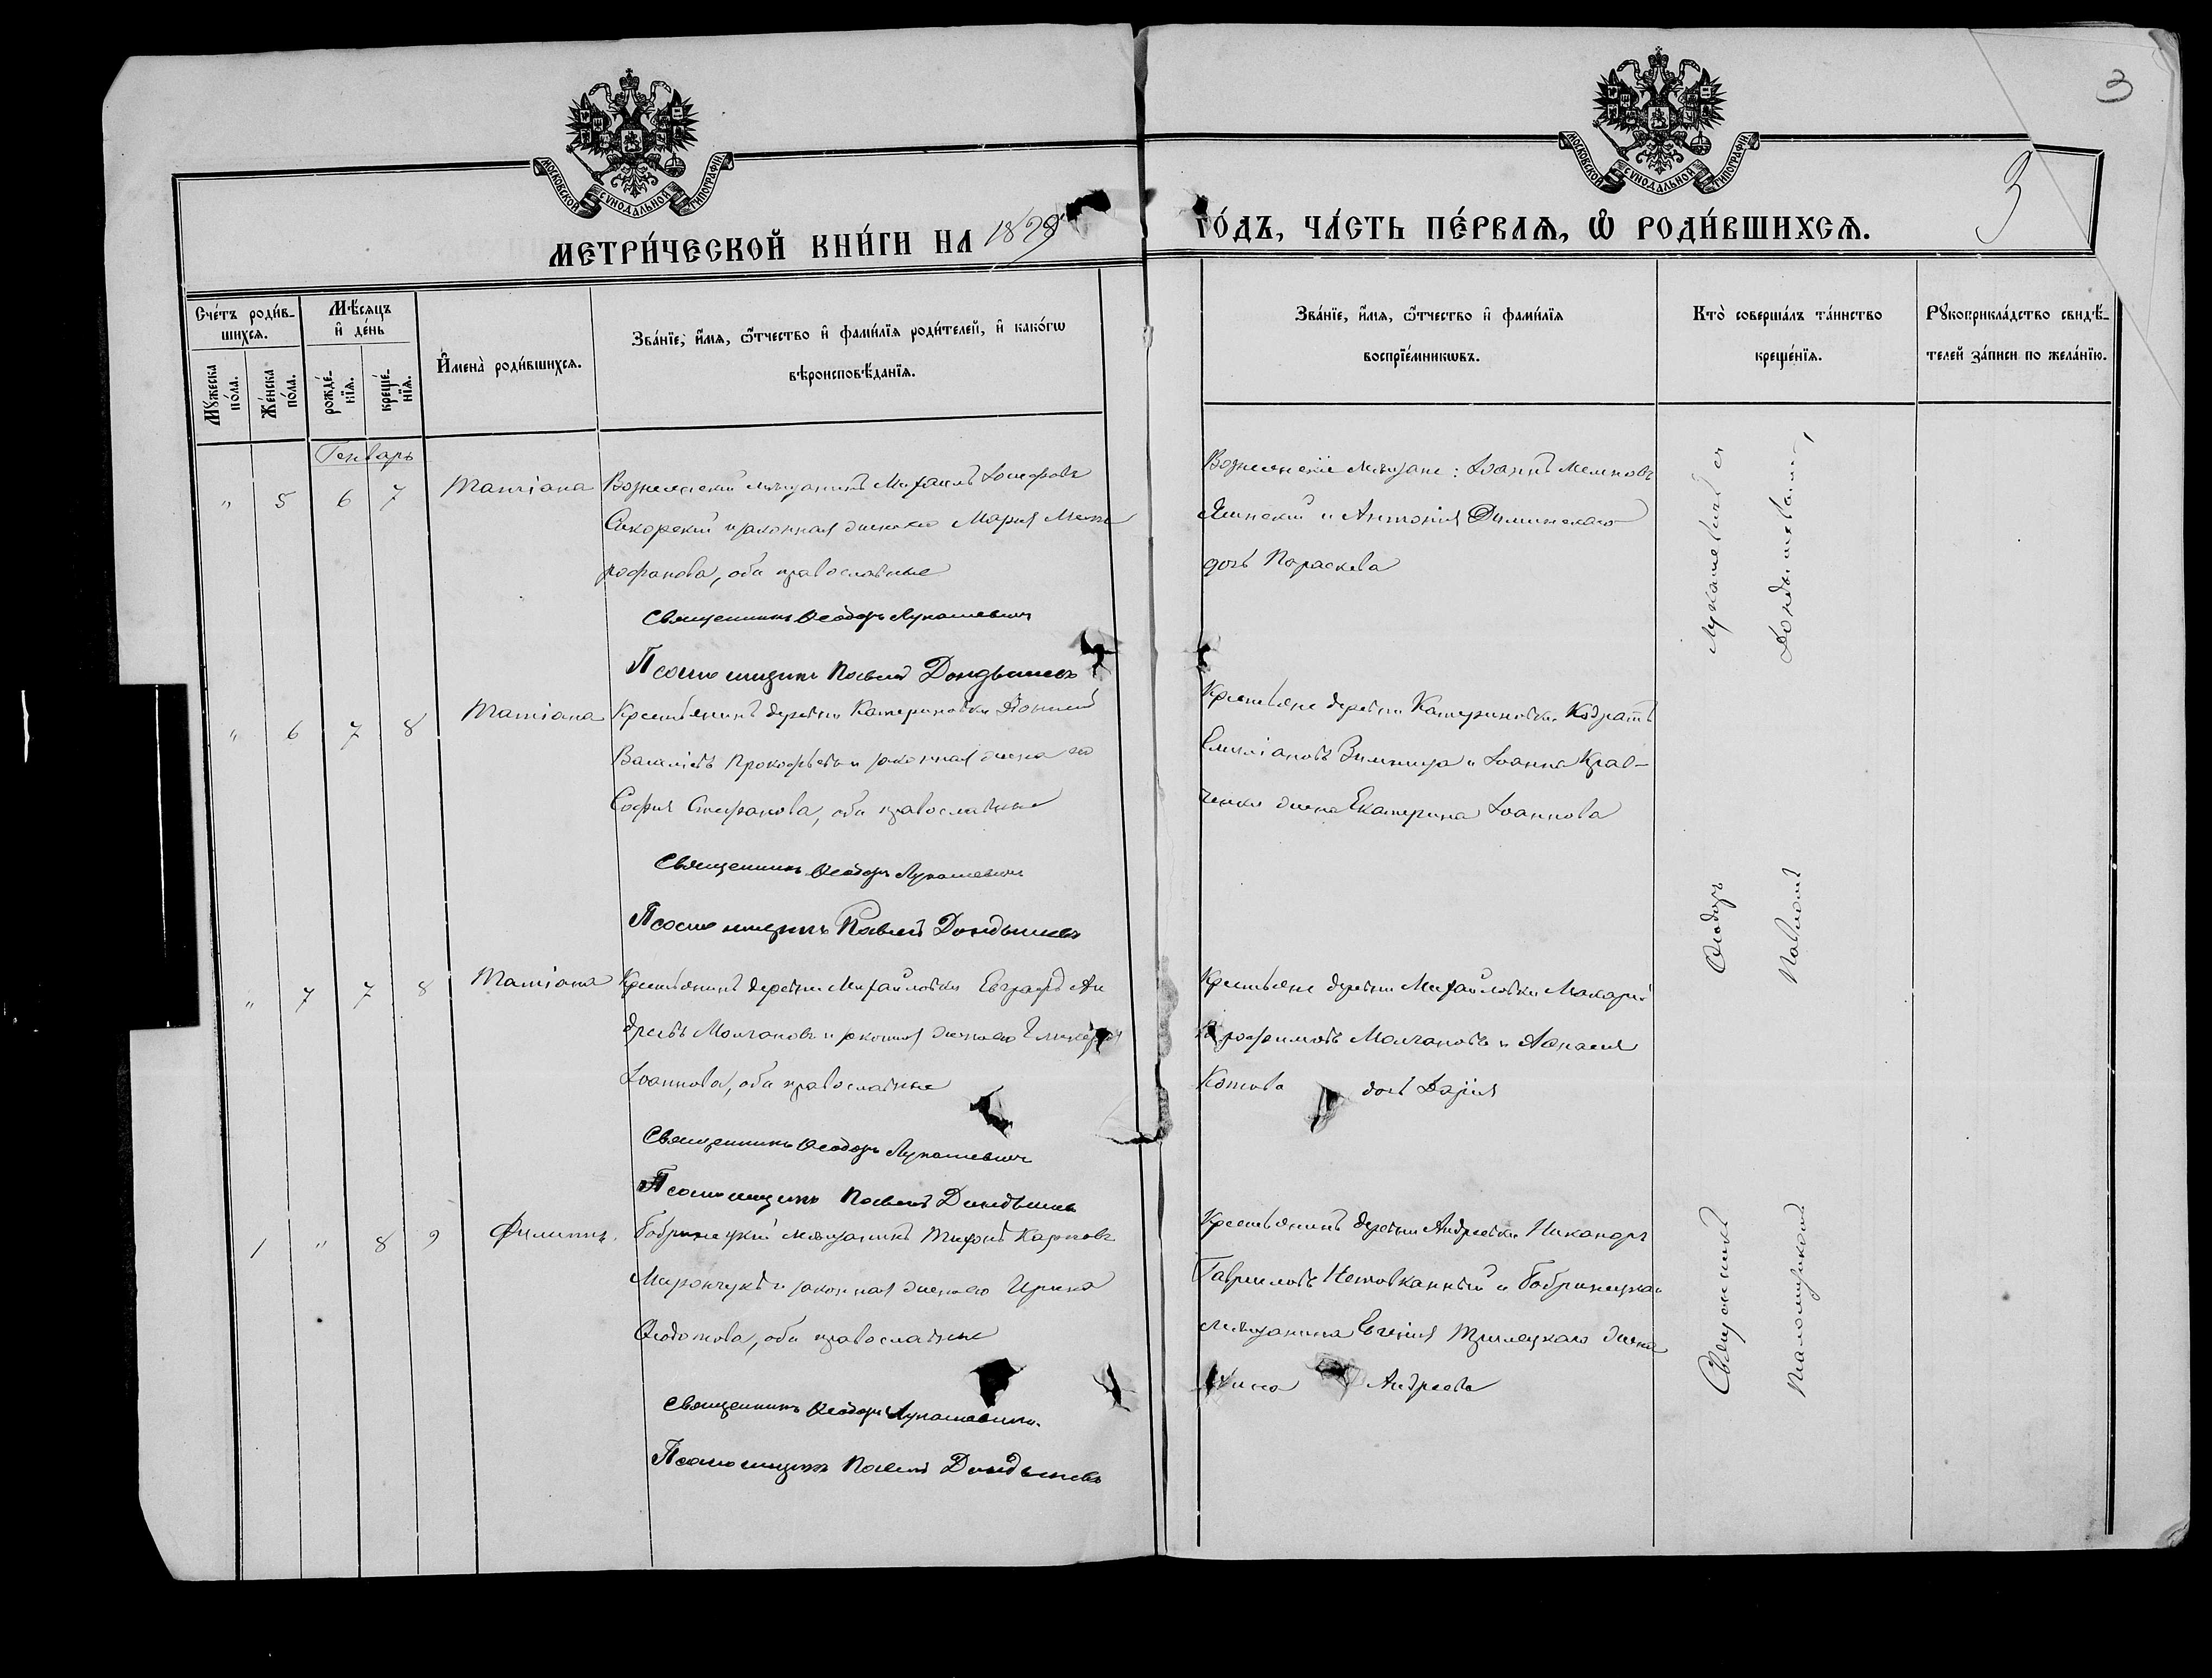 3
МОСКОВСКОЙ СѴНОДАЛЬНОЙ ТИПОГРАФІИ
МОСКОВСКОЙ СѴНОДАЛЬНОЙ ТИПОГРАФІИ
3
МЕТРИ́ЧЕСКОЙ КНИ́ГИ НА 1879
ГО́ДЪ, ЧА́СТЬ ПЕ́РВАѦ, Ѡ҆ РОДИ́ВШИХСѦ.
Сче́тъ роди́в-
шихсѧ.
Мꙋ́жеска по́ла.
Же́нска по́ла.
Мѣ́сѧцъ
и҆ де́нь
рожде́-
нїѧ.
креще́-
нїѧ.
И҆мена̀ роди́вшихсѧ.
Зва́нїе, и҆́мѧ, ѻ҆́тчество и҆ фами́лїѧ роди́телей, и҆ како́гѡ
вѣроисповѣ́данїѧ.
Зва́нїе, и҆́мѧ, ѻ҆́тчество и҆ фами́лїѧ
воспрїе́мникѡвъ.
Кто̀ соверша́лъ та́инство
креще́нїѧ.
Рꙋкоприкла́дство свидѣ́-
телей за́писи по жела́нїю.
Генварь
" 5 6 7 Татіана Вознесенскій мѣщанинъ Михаилъ Іосифовъ
Сикорскій и законная жена его Марія Мит
рофанова, оба православные
Священникъ Ѳеодоръ Лукашевичъ
Псаломщикъ Павелъ Дондышевъ
Вознесенскіе мѣщане: Іоаннъ
и Антонія
дочь Параскева
" 6 7 8 Татіана Крестьянинъ деревни Катериновки
Василіевъ Прокофьевъ и законная жена его
Софія Стефанова, оба православные
Священникъ Ѳеодоръ Лукашевичъ
Псаломщикъ Павелъ Дондышевъ
Крестьяне деревни Катериновки Кодратъ
Емиліановъ Зимница и Іоанна Крав-
ченки жена Екатерина Іоаннова
" 7 7 8 Татіана Крестьянинъ деревни Михайловки Евграфъ Ан
дреевъ Молчановъ и законная жена его Гликерія
Іоаннова, оба православные
Священникъ Ѳеодоръ Лукашевичъ
Псаломщикъ Павелъ Дондышевъ
Крестьяне деревни Михайловки Макарій
Трофимовъ Молчановъ и Аѳанасія
Котова дочь Дарія
1 " 8 9 Филиппъ. Бобринецкій мѣщанинъ Тихонъ Карповъ
Мирончукъ и законная жена его Ирина
Ѳеодотова, оба православные
Священникъ Ѳеодоръ Лукашевичъ.
Псаломщикъ Павелъ Дондышевъ
Крестьянинъ деревни Андреевки Никаноръ
Гавриловъ Нетовканный и Бобринецкаго
мѣщанина Евгенія Трилецкаго жена
Анна Андреева
Священникъ Ѳеодоръ Лукашевичъ съ
Псаломщикомъ Павломъ Дондышевымъ